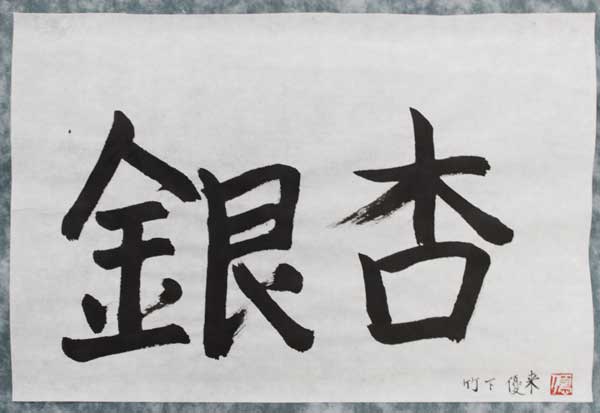 銀杏
竹下優来